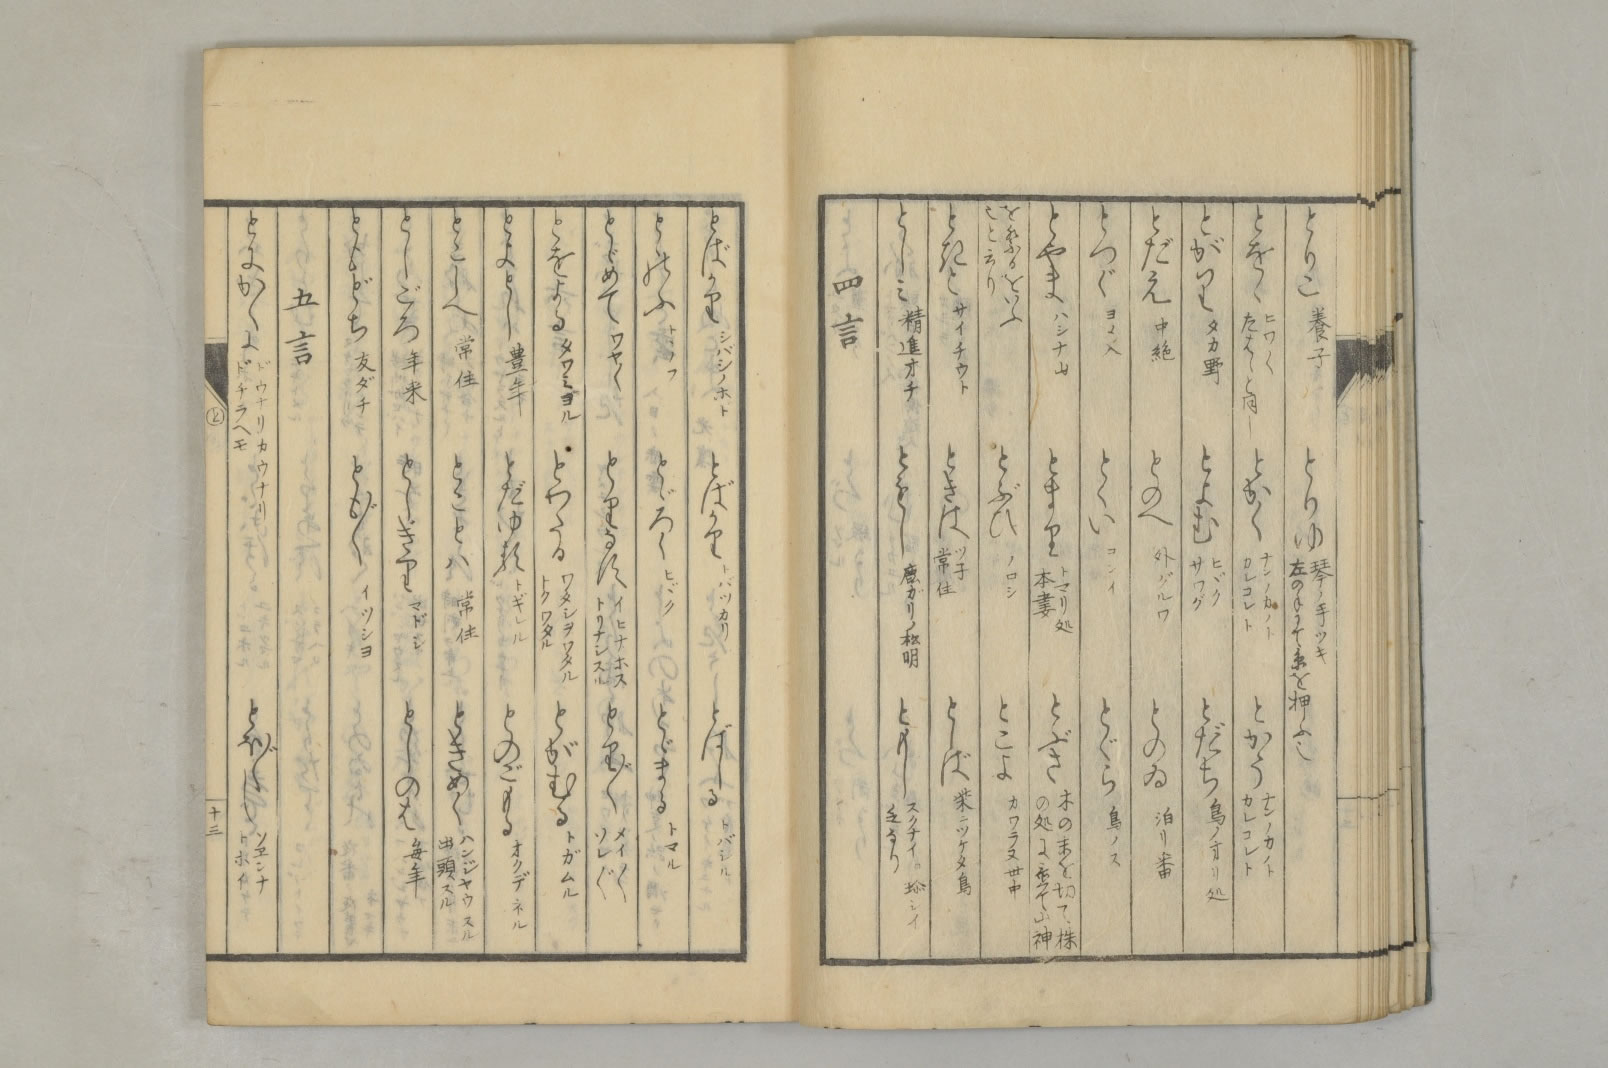 とりこ 養子
とりゆ 琴ノ手ツキ
左の手にて糸を押ふこ
とをゝ ヒワく
とかく ナンノカノト
カレコレト
とかう ナンノカノト
カレコレト
とがり タカ野
とよむ ヒヾク
サワグ
とだち 鳥ノオリ処
とだえ 中絶
とのへ 外グルワ
とのゐ 泊リ番
とつぐ ヨメ入
とくい コンイ
とぐら 鳥ノス
とやま ハシナ山
とまり トマリ処
本妻
とぶさ 木の末を切て株
の処に
とぶひ ノロシ
とこよ カワラヌ世中
とねと サイチウト
ときは ツ子
常住
としば 柴ニツケタ鳥
としミ 精進オチ
ともし 鹿ガリノ松明
ともし スクナイ
四言
とばかり シバシノホト
とばかり トバツカリ
とばしる トバシル
とゝのふ トヽノフ
とゞろく ヒヾク
とゞまる トマル
とゞめて ワヤく
とりなす イヒナホス
トリナシスル
とりどり メイく
ソレく
とをよる タワミヨル
とわたる ワタシヲワタル
トクワタル
とがむる トガムル
とよとし 豊年
とだゆる トギレル
とのごもる オクデネル
とこしへ 常住
とことハ 常住
ときめく ハンジヤウスル
出頭スル
としごろ 年来
としぎり マドシ
としのは 毎年
ともどち 友ダチ
ともども イツシヨ
五言
とよかくよ ドウナリカウナリ
ドチラヘモ
と
十三